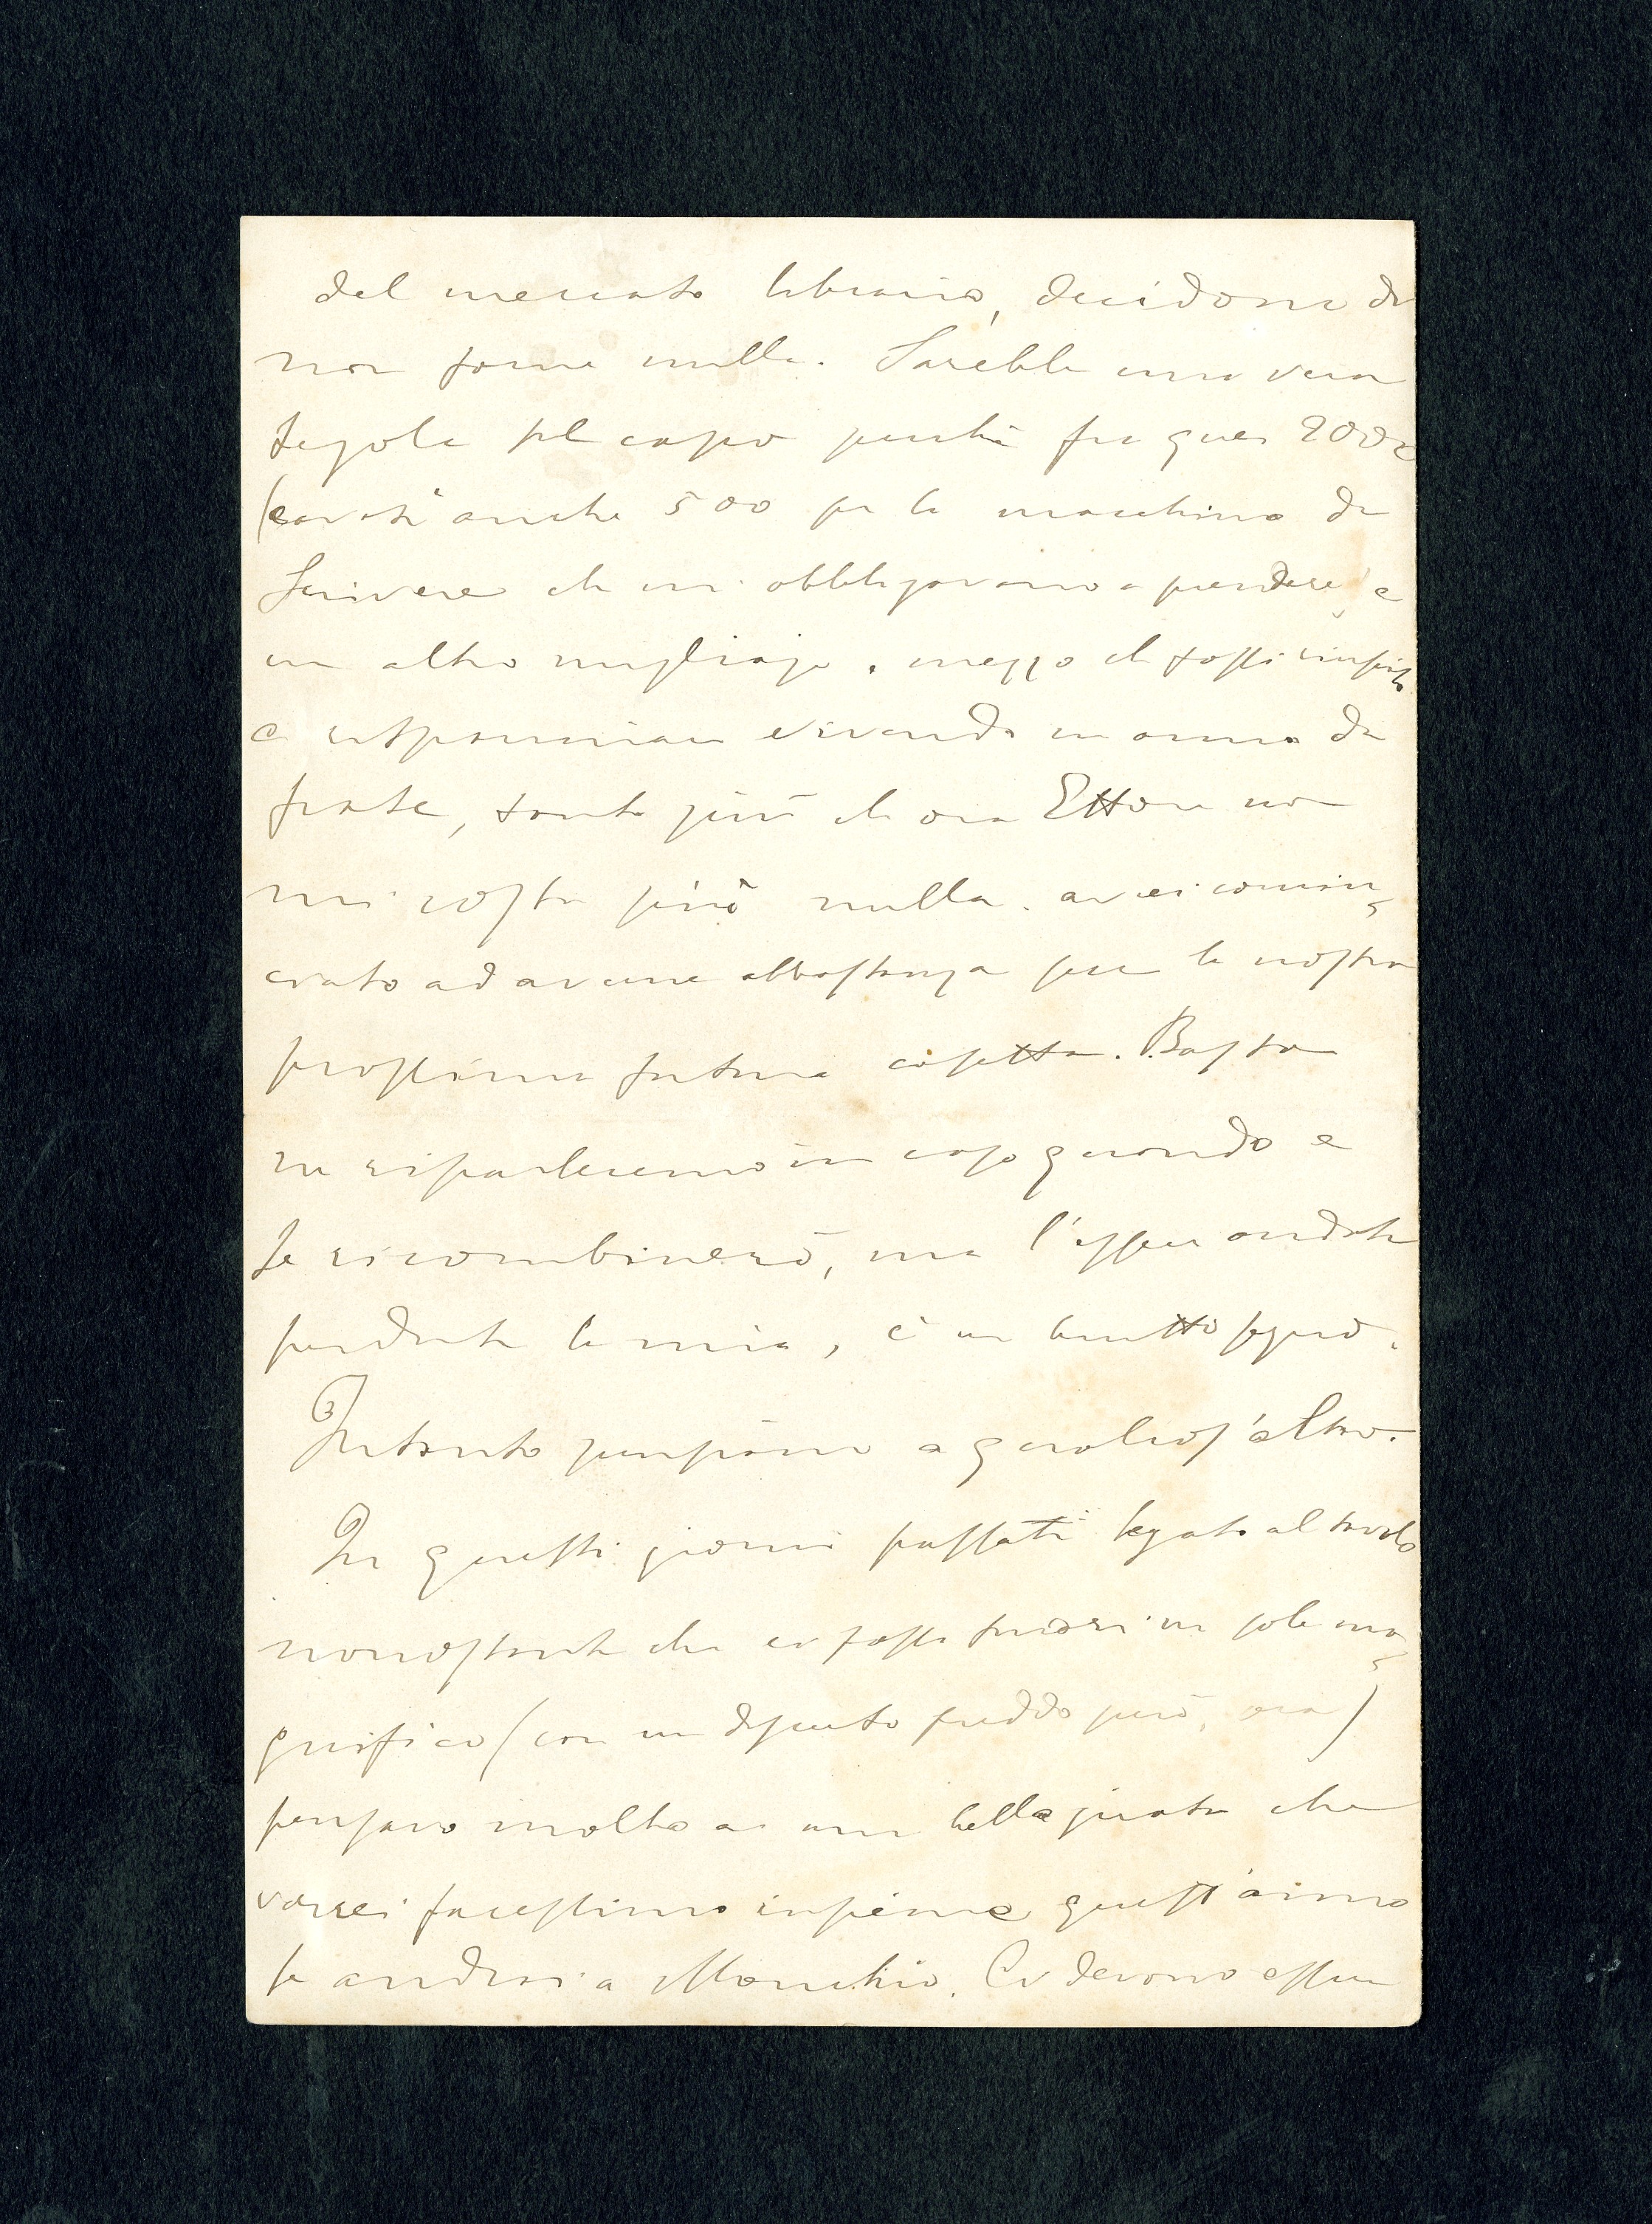 del mercato librario, decidono di
non farne nulla. Sarebbe una vera
tegola sul capo perché fra quei 2000
(cavati anche 500 per la macchina da
scrivere che mi obbligavano a prendere) e
un altro migliajo e mezzo che fossi riuscito
a risparmiare vivendo un anno da
frate, tanto più che ora Ettore non
mi costa più nulla. avrei comin=
ciato ad averne abbastanza per la nostra
prossima futura casetta. Basta
ne riparleremo in caso quando e
se ricombinerò, ma l'essere andata
perduta la mia, è un brutto segno.
Intanto pensiamo a qualcos'altro.
In questi giorni passati legato al tavolo
nonostante che ci fosse fuori un sole ma=
gnifico (con un discreto freddo però, ora)
pensavo molto a una bella gita che
vorrei facessimo insieme quest'anno
se andrai a Monchio. Ci devono essere